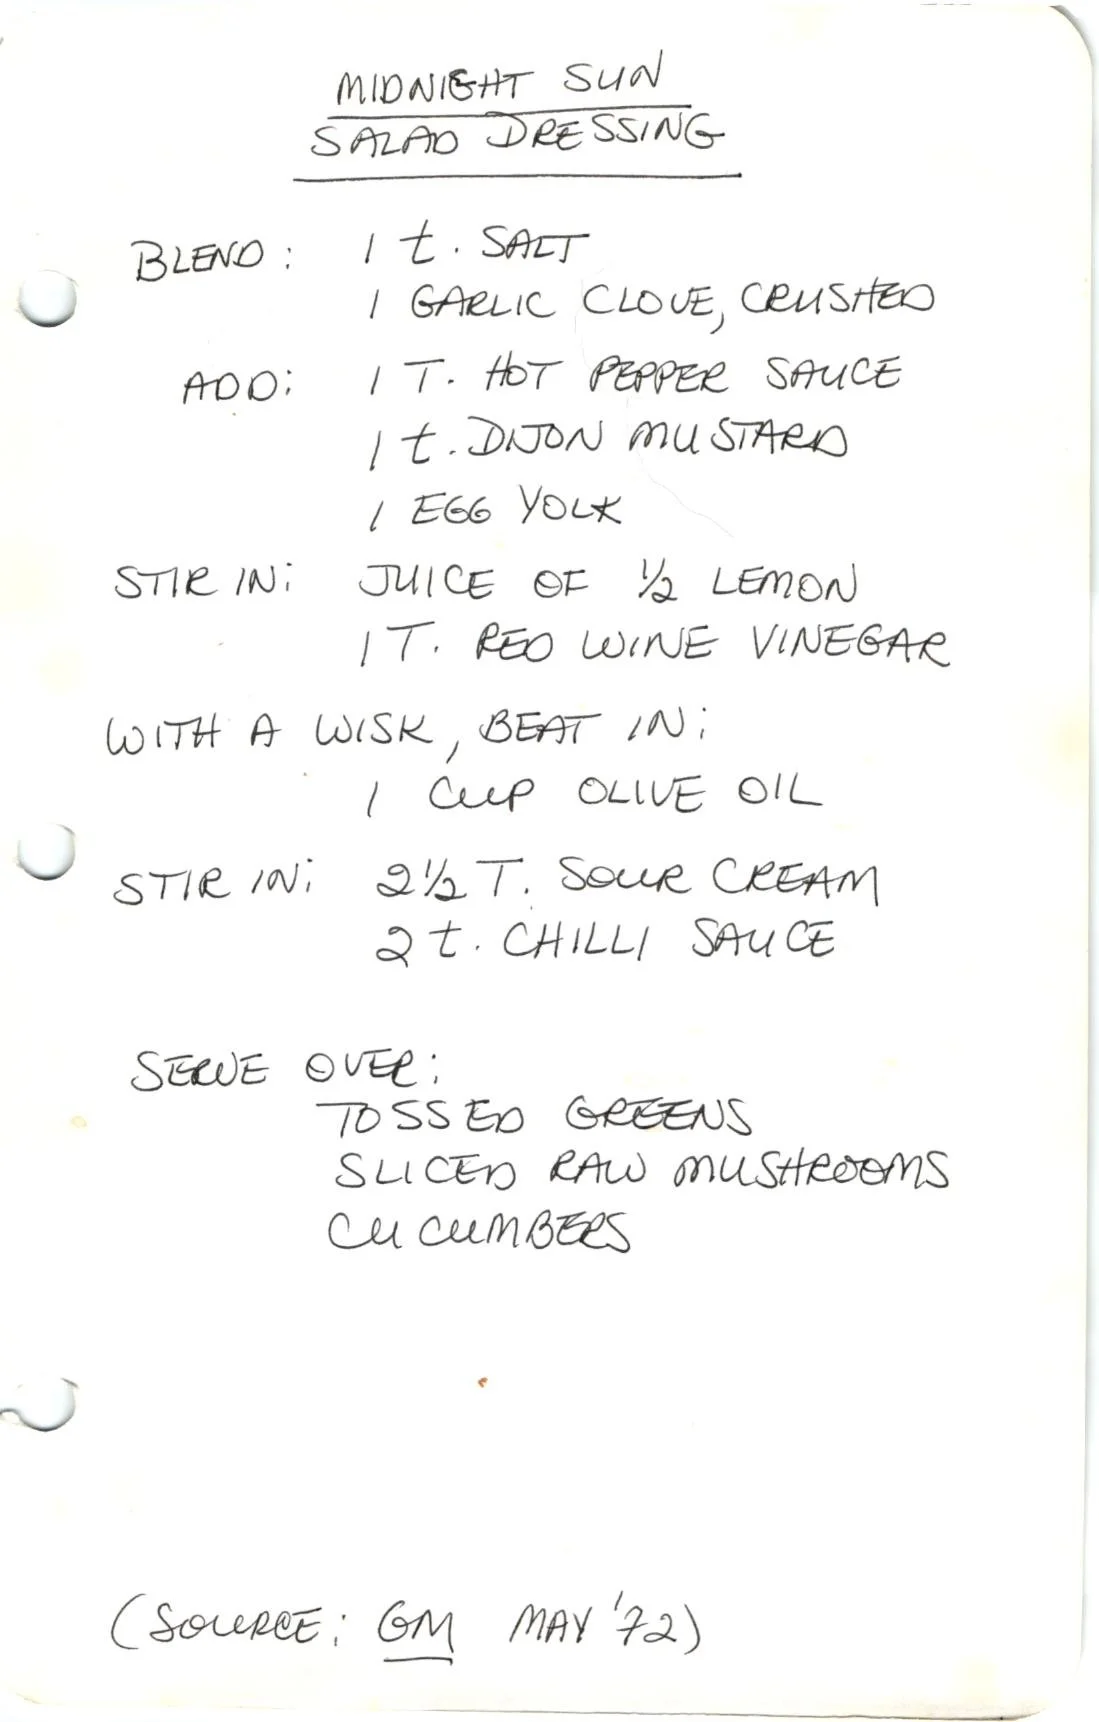 MIDNIGHT SUN
SALAD DRESSING
BLEND: 1 t. SALT
1 GARLIC CLOVE, CRUSHED
ADD: 1 T. HOT PEPPER SAUCE
1 t. DIJON MUSTARD
1 EGG YOLK
STIR IN: JUICE OF ½ LEMON
1 T. RED WINE VINEGAR
WITH A WISK, BEAT IN:
1 CUP OLIVE OIL
STIR IN: 2½ T. SOUR CREAM
2 t. CHILLI SAUCE
SERVE OVER:
TOSSED GREENS
SLICED RAW MUSHROOMS
CUCUMBERS
(SOURCE: GM MAY '72)